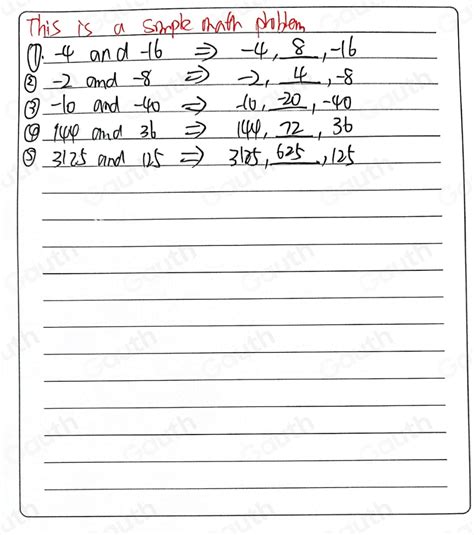 This is a simple math problem
①. -4 and -16 ⇒ -4, 8, -16
② -2 and -8 ⇒ -2, 4, -8
③ -10 and -40 ⇒ -10, -20, -40
④ 144 and 36 ⇒ 144, 72, 36
⑤ 3125 and 125 ⇒ 3125, 625, 125